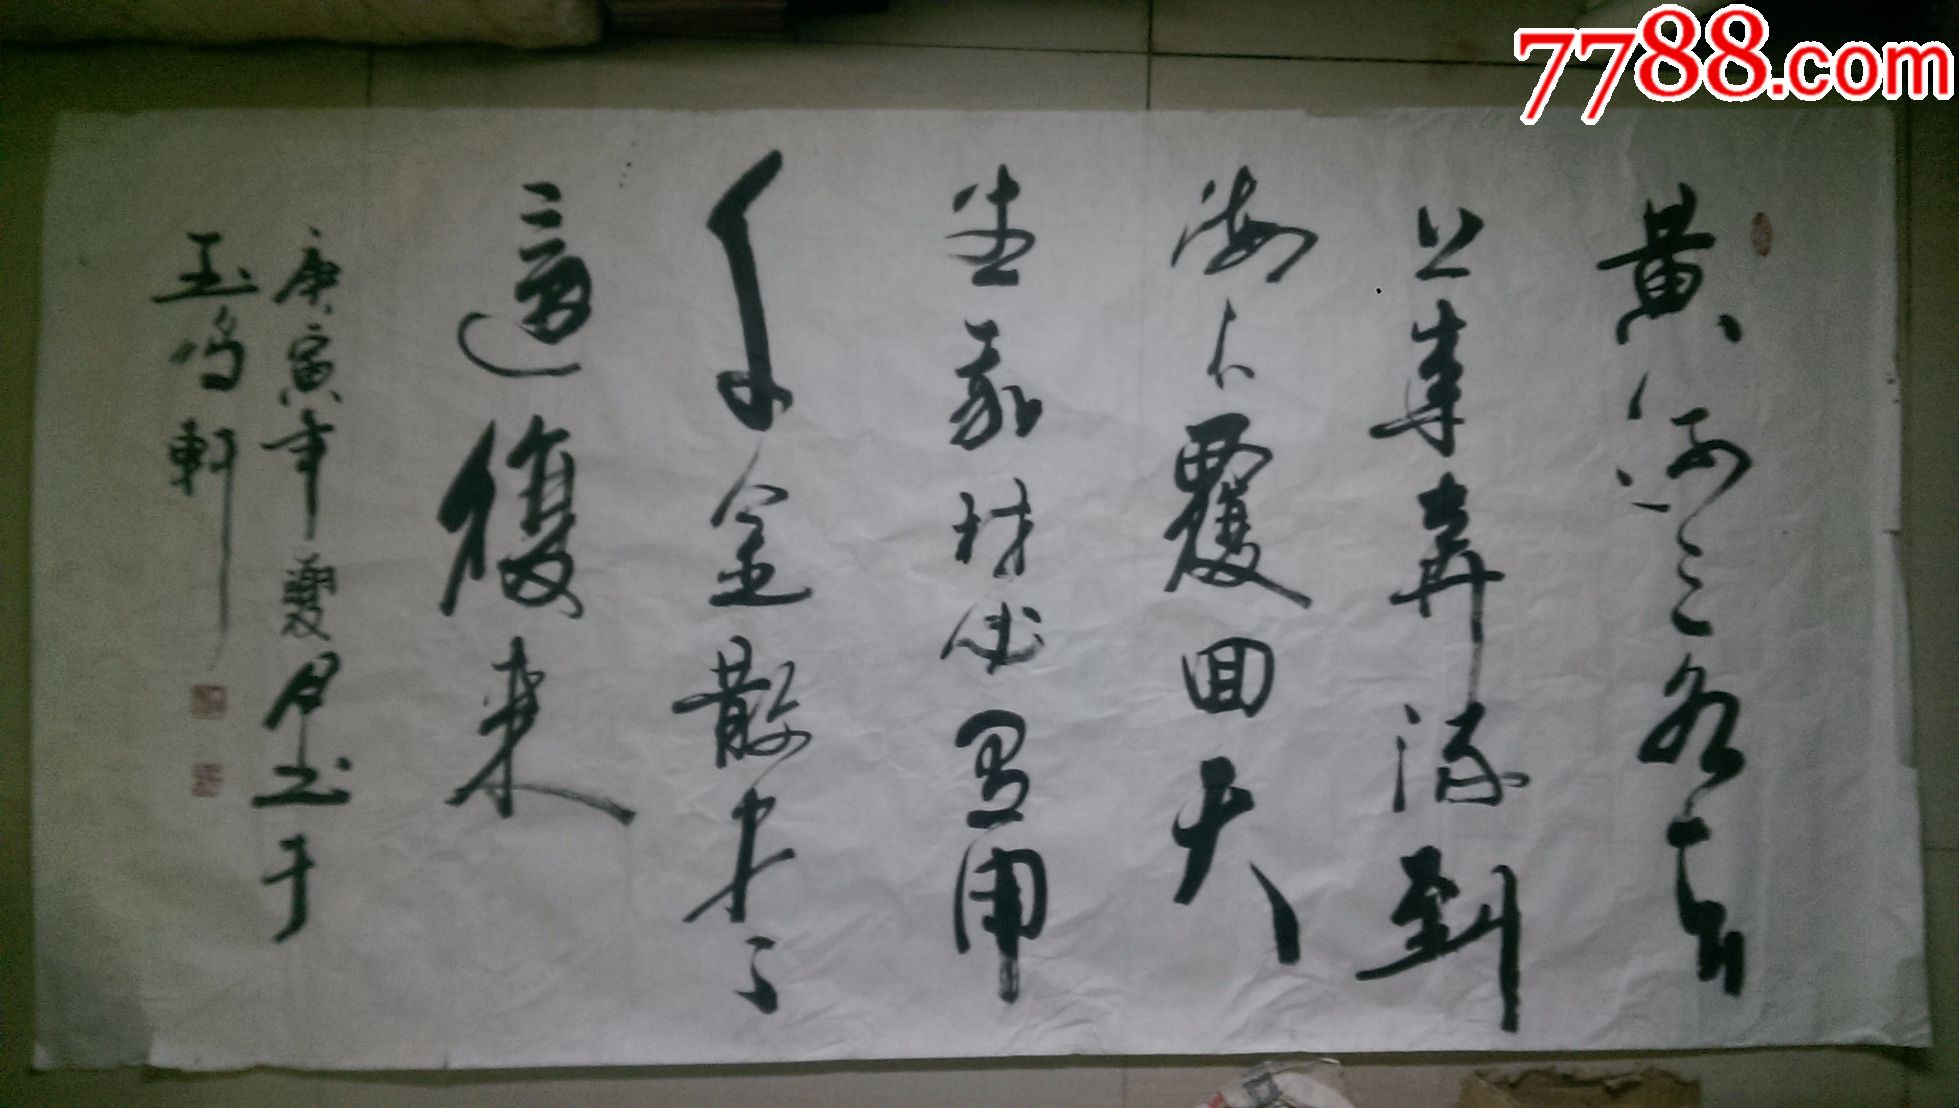 黄河之水天
上来奔流到
海不覆回天
生我材必有用
千金散尽
還復来
庚寅年夏月书于
玉鸣轩
7788.com